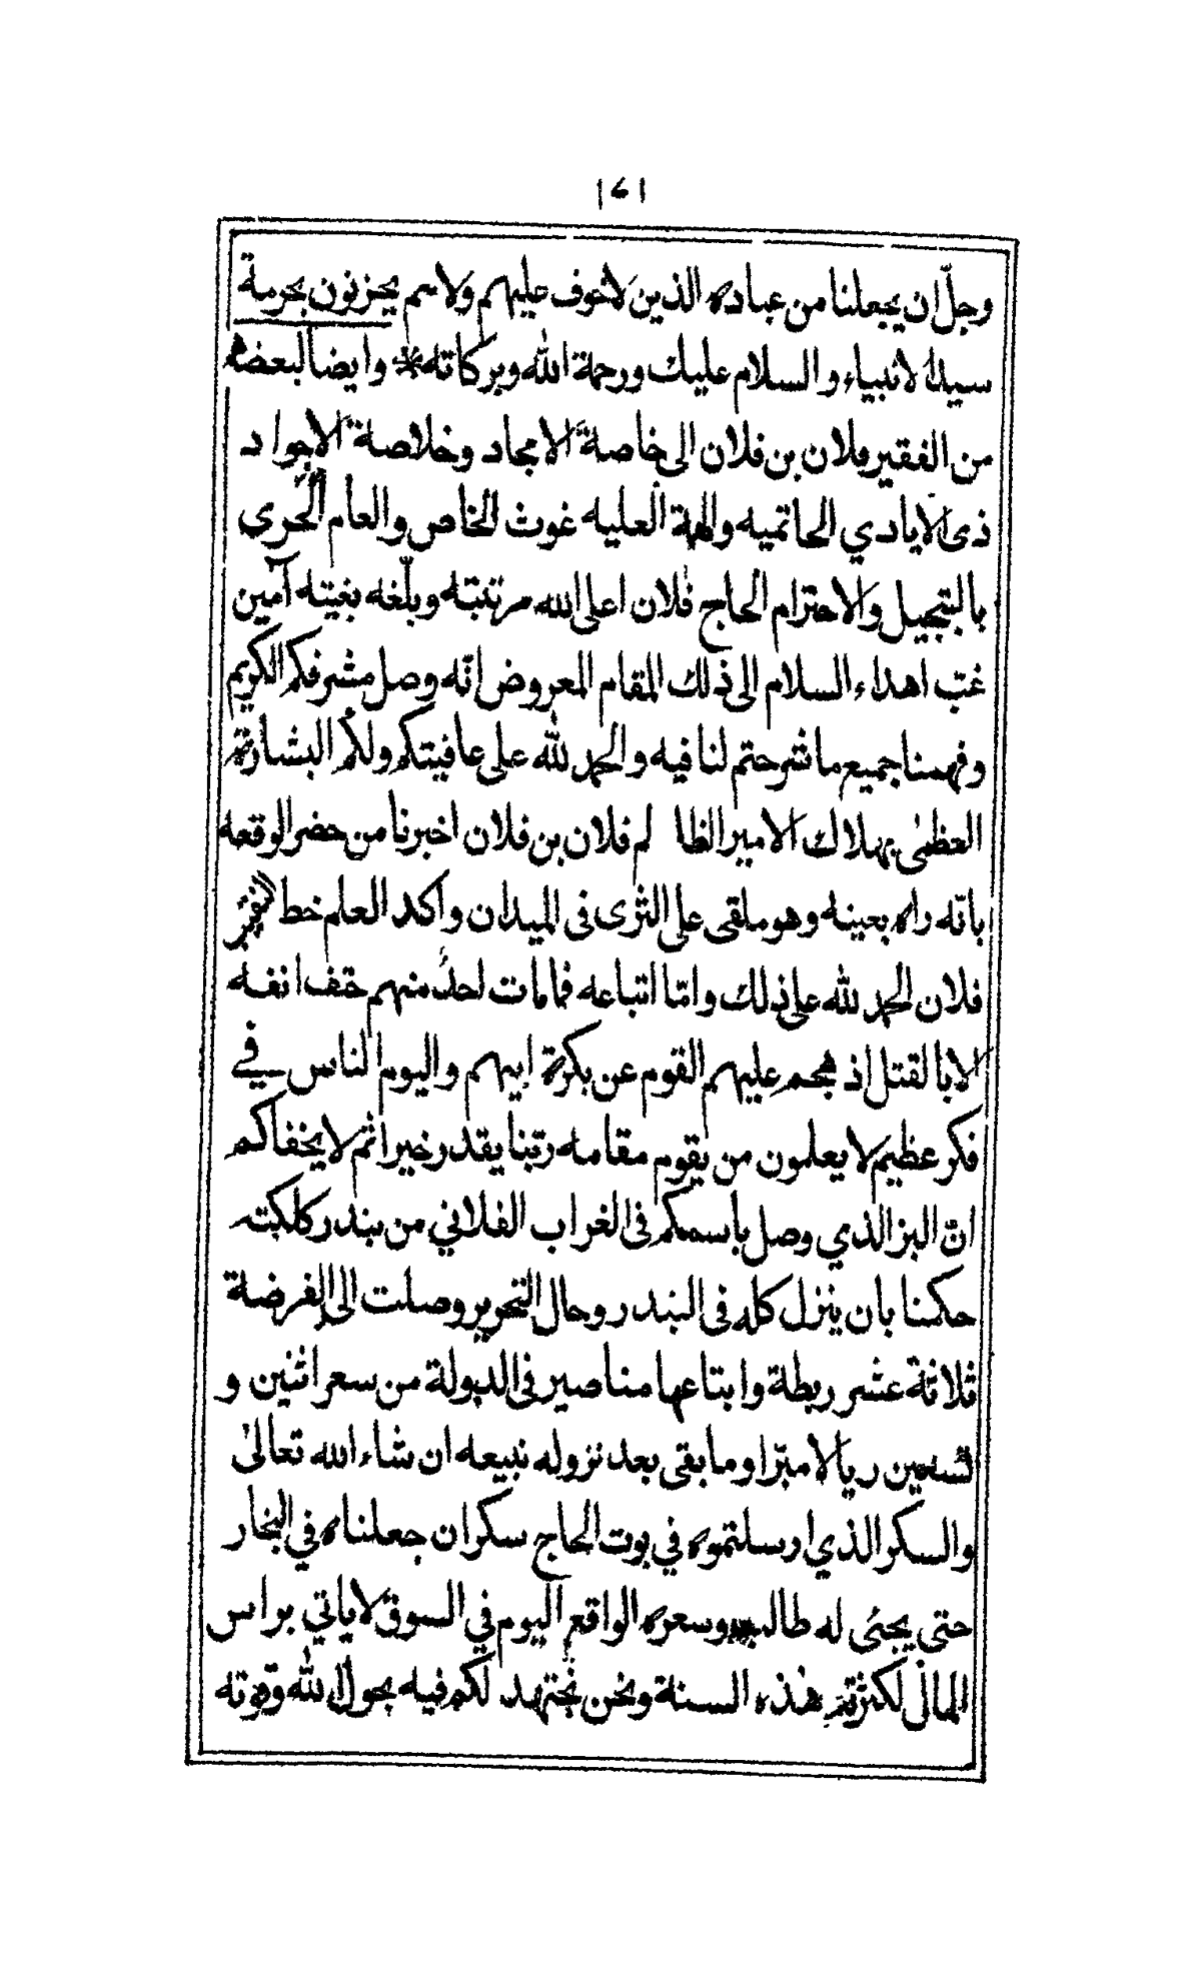 ١٤١
وجلّ ان يجعلنا من عباده الذين لاخوف عليهم ولاهم يحزنون بحرمة
سيد الانبياء والسلام عليك ورحمة الله وبركاته * وايضا لبعضهم
من الفقير فلان بن فلان الى خاصة الامجاد وخلاصة الاجواد
ذى الايادي الحاتميه والهمة العليه غوث الخاص والعام الحرى
بالتبجيل والاحترام الحاج فلان اعلى الله مرتبته وبلّغه بغيته آمين
غبّ اهداء السلام الى ذلك المقام المعروض انّه وصل مشرفكم الكريم
وفهمنا جميع ما شرحتم لنا فيه والحمد لله على عافيتكم ولكم البشارة
العظمى بهلاك الامير الظالم فلان بن فلان اخبرنا من حضر الوقعه
بانّه راه بعينه وهو ملقى على الثرى فى الميدان واكد العلم خط
فلان الحمد لله على ذلك وامّا اتباعه فمامات احدٌ منهم حتف انفه
الا بالقتل اذ هجم عليهم القوم عن بكرة ابيهم واليوم الناس في
فكر عظيم لا يعلمون من يقوم مقامه ربّنا يقدر خيرا ثم لا يخفاكم
انّ البز الذي وصل باسمكم فى الغراب الفلاني من بندر كلكته
حكمنا بان ينزل كله فى البندر وحال التحرير وصلت الى الفرضة
ثلاثة عشر ربطة وابتاعها مناصير فى الدولة من سعر اثنين و
تسعين ريالا مبتزا ومابقى بعد نزوله نبيعه ان شاء الله تعالىٰ
والسكر الذي ارسلتموه في بوت الحاج سكران جعلناه في البخار
حتى يجئى له طالب وسعره الواقع اليوم في السوق لا ياتي براس
المال لكثرته هذه السنة ونحن نجتهد لكم فيه بحول الله وقوته